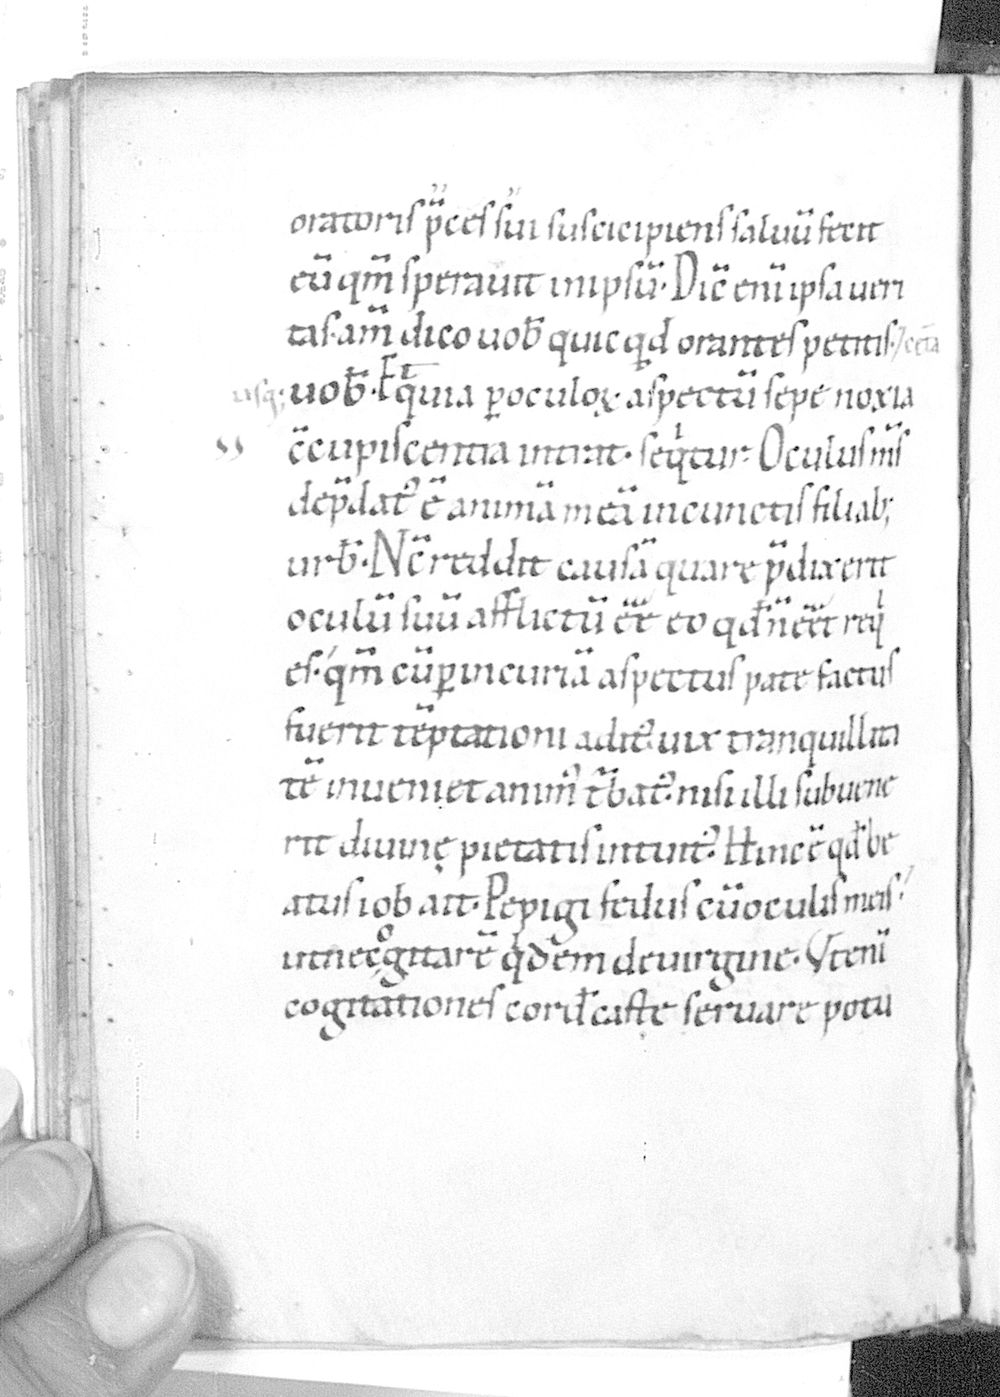 oratoris p̄ces sui suscicipiens saluū fecit
eū qm̄ sperauit in ipsū. Dic̄ enī ipsa ueri
tas. am̄ dico uob̄ quicq̣d orantes petitis. ⁊ cet̄a
usq; uob̄. Et q̄uia p̱ oculoꝝ aspectū sepe noxia
c̄cupiscentia intrat. seqͥtur. Oculus m̄s
dep̄dat᷒ ē animā meā in cunctis filiab;
urb̄. Nc̄ reddit causā quare p̄dixerit
oculū suū afflictū ēē eo qd̄ n̄ eēt reqͥ
es. qm̄ cū p̱ incuriā aspectus pate factus
fuerit tēptationi adit᷒. uix tranquillita
tē inueniet anim᷒ t̄bat᷒. nisi illi subuene
rit diuinę pietatis intuit᷒. Hinc ē qd̄ be
atus iob ait. Pepigi fedus cū oculis meis.
ut nec c̄gitarē qͥdem de uirgine. Vt enī
cogitationes cord̄ caste seruare potu